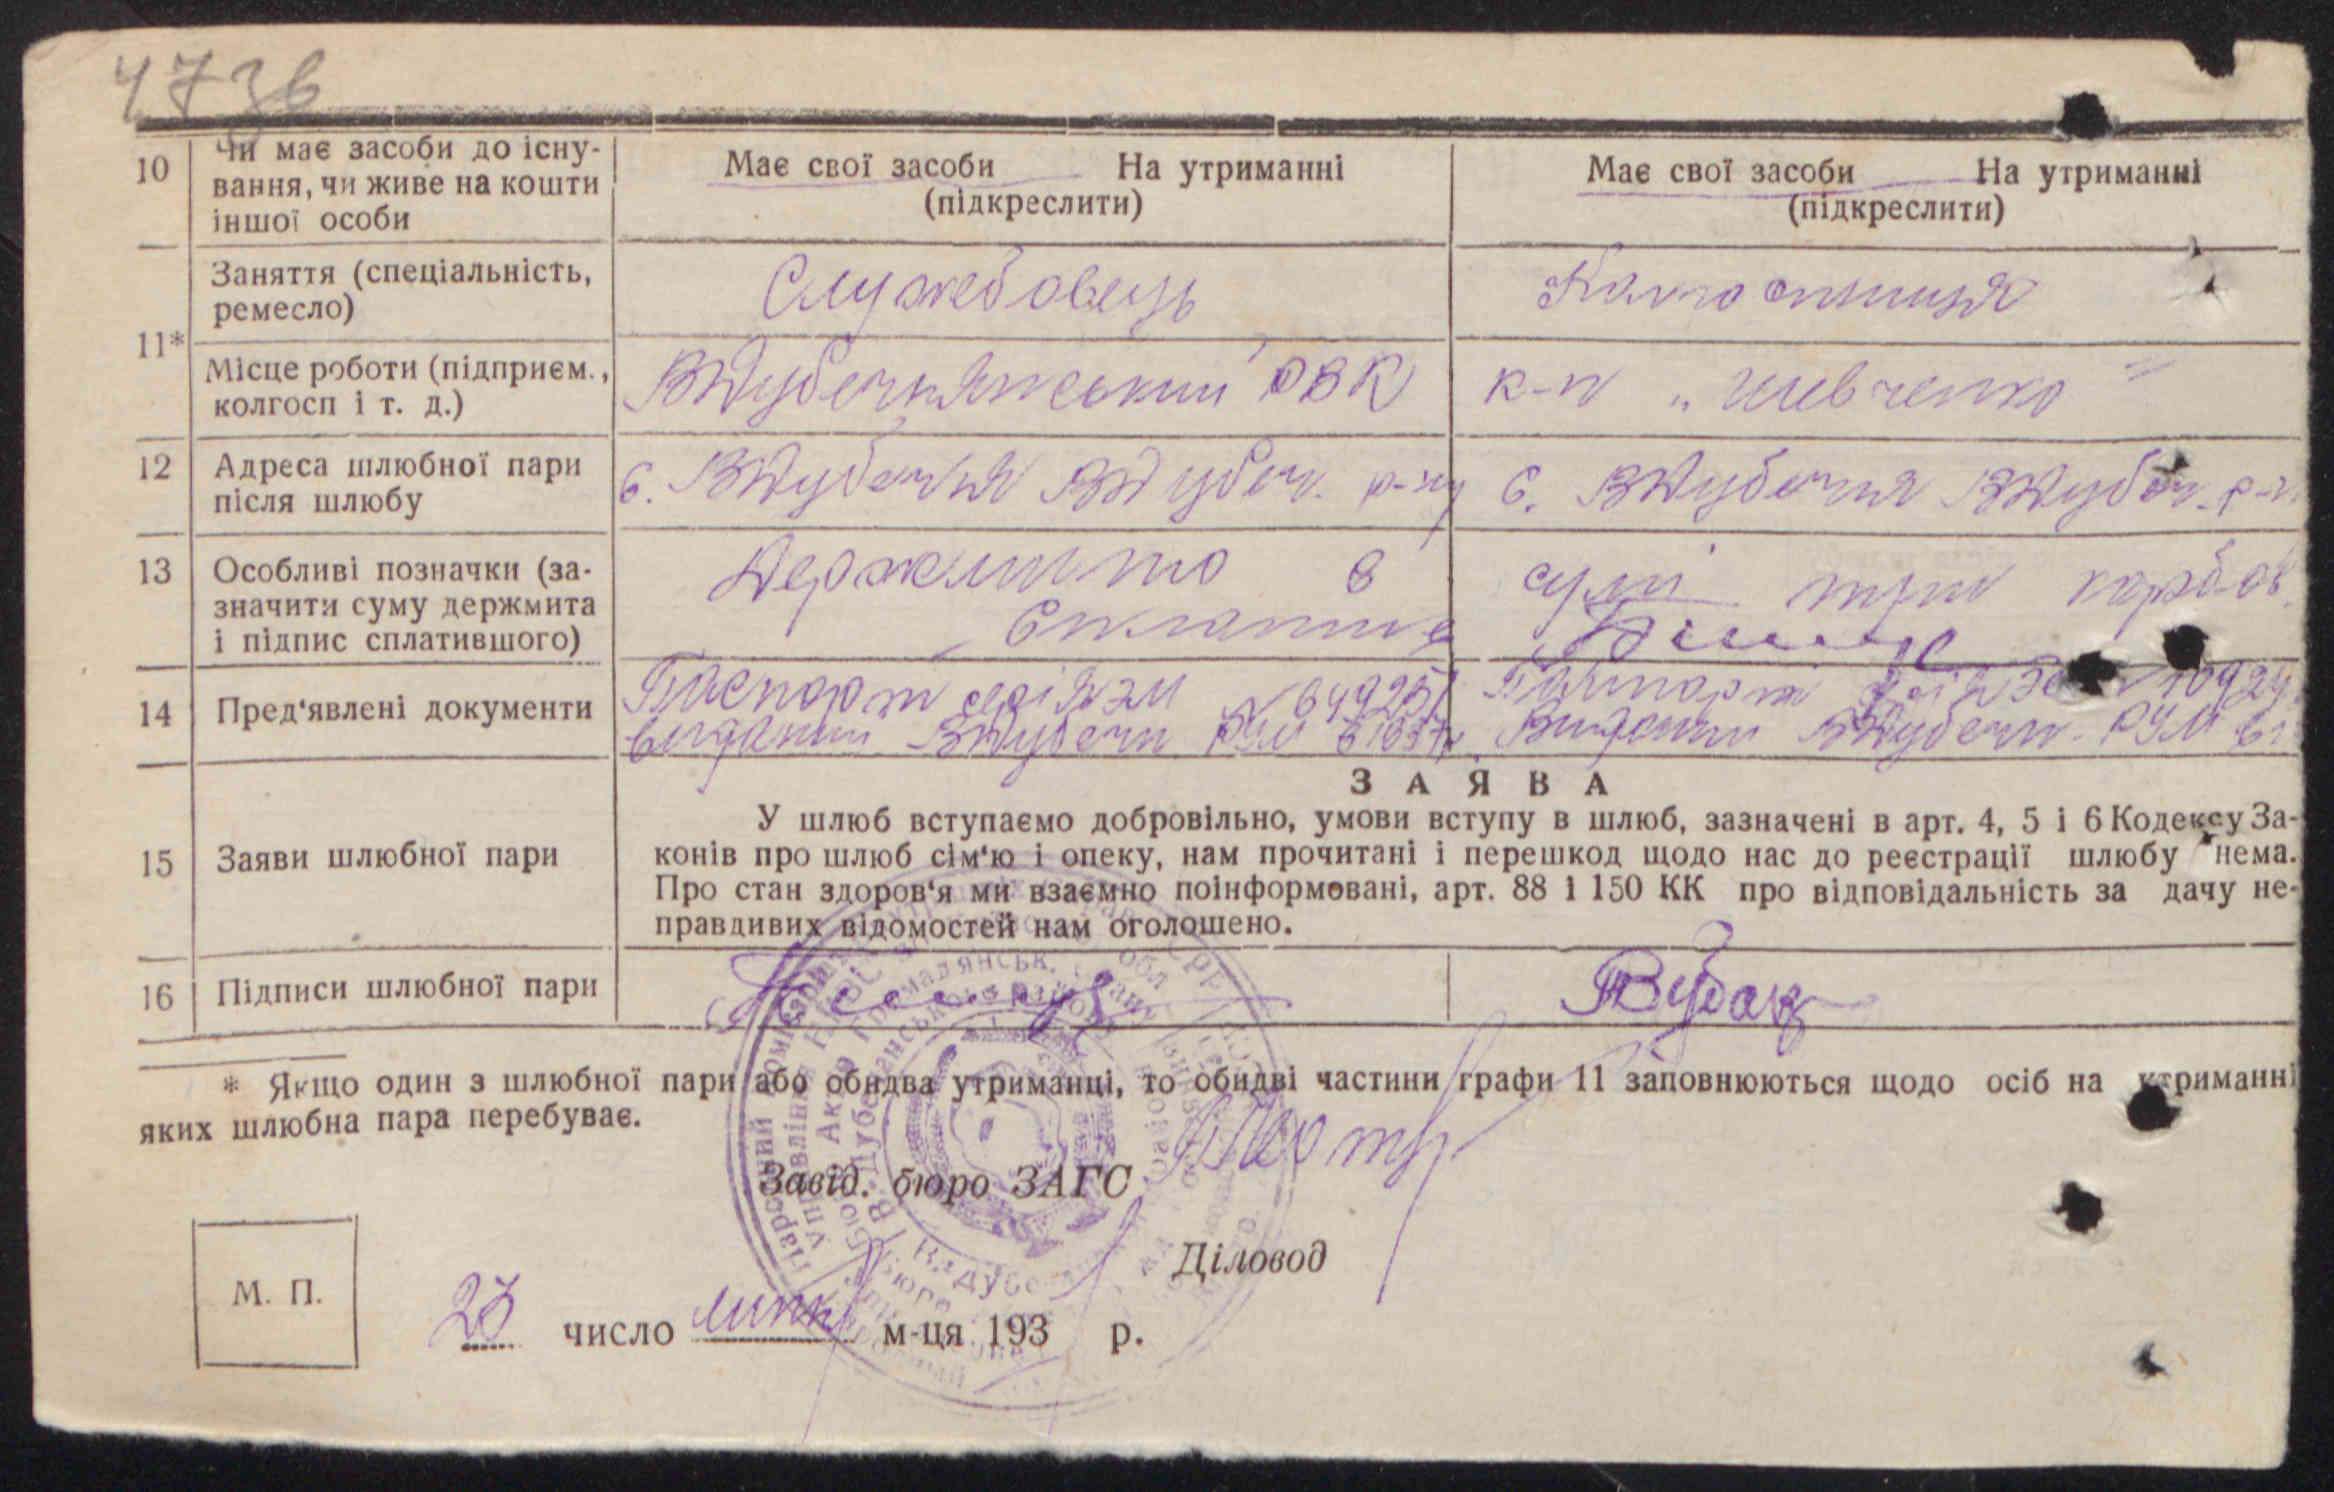 473в
10 Чи має засоби до існу-
вання, чи живе на кошти
іншої особи
Має свої засоби На утриманні
(підкреслити)
Має свої засоби На утриманні
(підкреслити)
11*
Заняття (спеціальність,
ремесло)
Службовець
Колгоспниця
Місце роботи (підприєм.,
колгосп і т. д.)
ВДубечнянський РВК
к-п „Шевченко"
12 Адреса шлюбної пари
після шлюбу
с. ВДубечня ВДубеч. р-ну
с. ВДубечня ВДубеч. р-н
13 Особливі позначки (за-
значити суму держмита
і підпис сплатившого)
Держмито в сумі три карбов.
Сплатив
14 Пред'явлені документи
Паспорт серія ЭМ № 649251
виданий ВДубечн РУМ в 1937р
Паспорт
Виданий ВДубечн. РУМ в
15 Заяви шлюбної пари
ЗАЯВА
У шлюб вступаємо добровільно, умови вступу в шлюб, зазначені в арт. 4, 5 і 6 Кодексу За-
конів про шлюб сім'ю і опеку, нам прочитані і перешкод щодо нас до реєстрації шлюбу нема.
Про стан здоров'я ми взаємно поінформовані, арт. 88 і 150 КК про відповідальність за дачу не-
правдивих відомостей нам оголошено.
16 Підписи шлюбної пари
* Якщо один з шлюбної пари або обидва утриманці, то обидві частини графи 11 заповнюються щодо осіб на утриманні
яких шлюбна пара перебуває.
Завід. бюро ЗАГС
Діловод
М. П.
23 число липня м-ця 193 р.